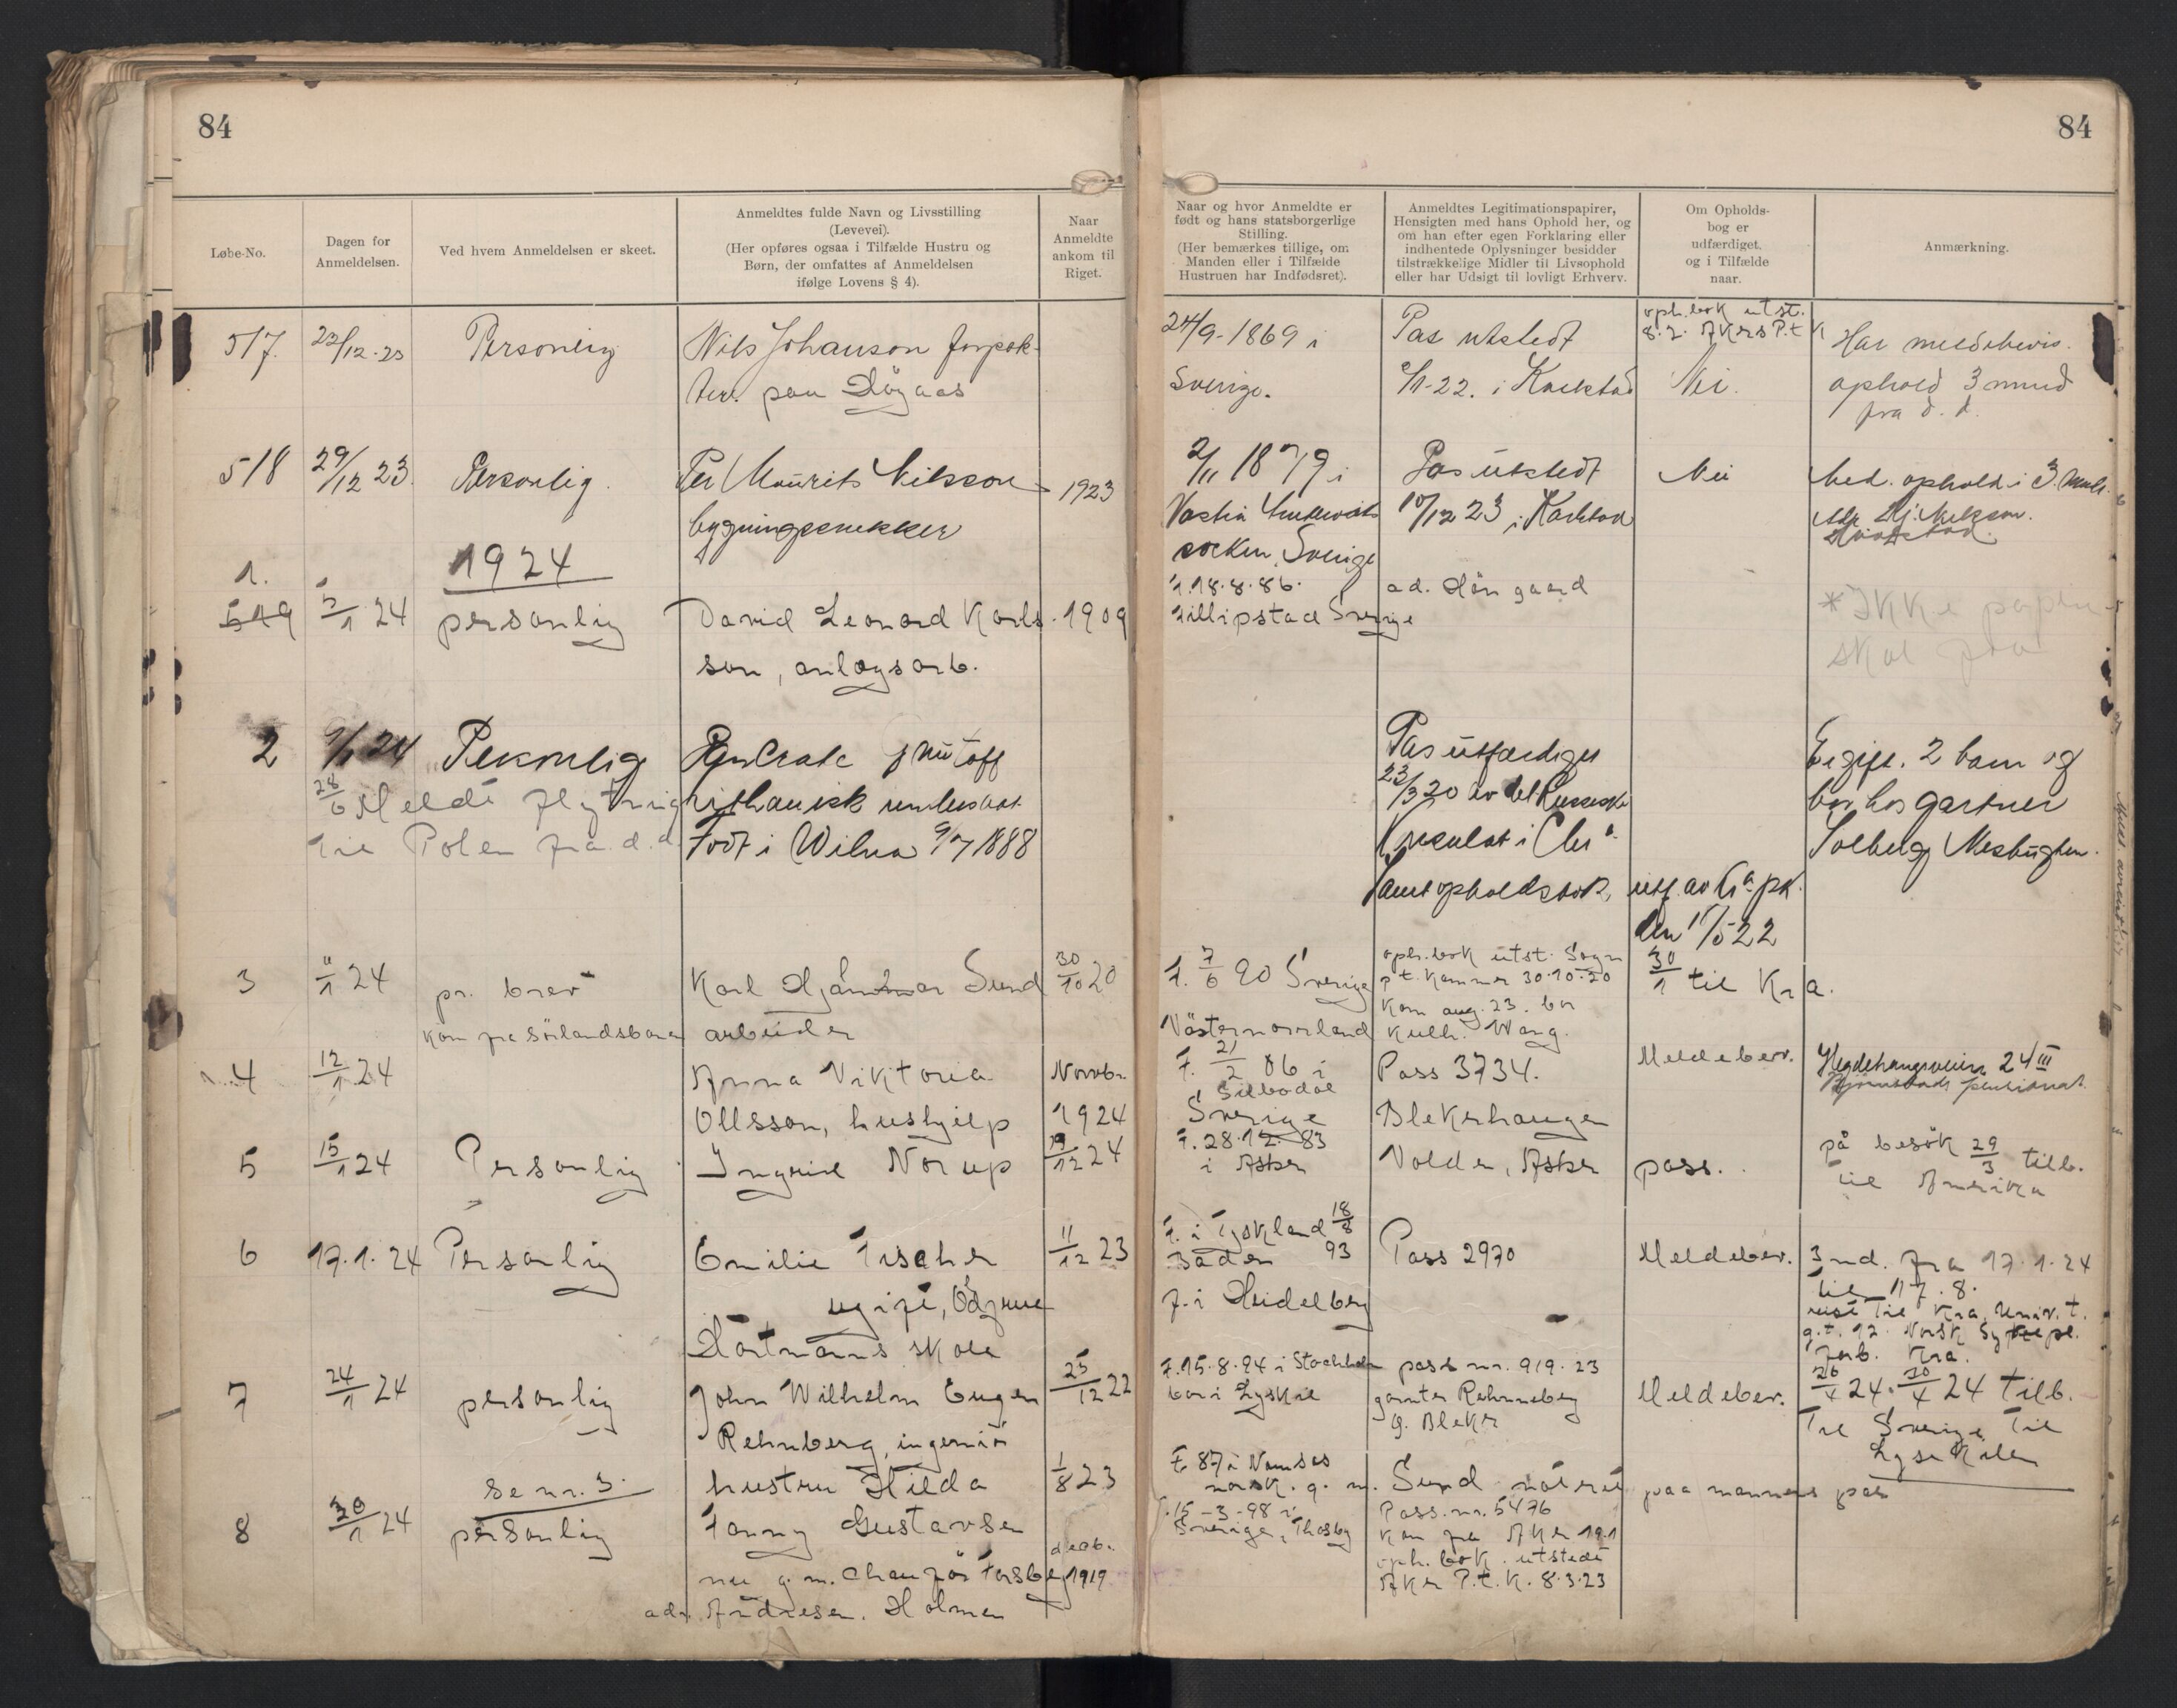 84
84
Løbe-No.
Dagen for
Anmeldelsen.
Ved hvem Anmeldelsen er skeet.
Anmeldtes fulde Navn og Livsstilling
(Levevei).
(Her opføres ogsaa i Tilfælde Hustru og
Børn, der omfattes af Anmeldelsen
ifølge Lovens § 4).
Naar
Anmeldte
ankom til
Riget.
Naar og hvor Anmeldte er
født og hans statsborgerlige
Stilling.
(Her bemærkes tillige, om
Manden eller i Tilfælde
Hustruen har Indfødsret).
Anmeldtes Legitimationspapirer,
Hensigten med hans Ophold her, og
om han efter egen Forklaring eller
indhentede Oplysninger besidder
tilstrækkelige Midler til Livsophold
eller har Udsigt til lovligt Erhverv.
Om Opholds-
bog er
udfærdiget,
og i Tilfælde
naar.
Anmærkning.
517.
22/12.23
Personlig
Nils Johanson forpak-
ter. paa Høgaas
24/9-1869 i
Sverige.
Pas utstedt
i Karlstad
oph.bok utst.
8.2. Akers P.t K
Nei.
Har meldebevis.
ophold 3 mnd
fra d. d.
518
29/12 23.
Personlig.
Per Maurits Nilsson
bygningssnekker
1923
2/11 1879 i
socken, Sverige
Pas utstedt
10/12 23 i Karlstad
Nei
Med. ophold i 3 mnd.
1924
1.
519
2/1 24
personlig
David Leonard Karls-
son, anlægsarb.
1909
f. 18.8.86.
Fillipstad Sverige
ad. Høn gaard
*Ikke papir
skal faa
2
9/1 24
Personlig
undersaat
Født i Wilna 9/7 1888
28/6 Meldt flytning
til Polen fra d.d.
Pas utfærdiget
23/3 20 av det Russiske
Konsulat i Chr.a
samt opholdsbok, utf. av Kr.a pk.
den 17/5 22
Er gift. 2 barn og
bor hos gartner
Solberg Nesbugten.
3
11/1 24
pr. brev
kom fra Sørlandsbanen
Karl Hjalmar Sund
arbeider
30/10 20
f. 7/6 90 Sverige
Västernorrland
oph.bok utst. Sogn
p t. kammer 30.10.20
kom aug. 23. bor
30/1 til Kra.
4
12/1 24
Anna Viktoria
Ollsson, hushjelp
Novbr.
1924
f. 21/2 06 i
Silbodal
Sverige
Pass 3734.
Blekerhaugen
Meldebev.
Hegdehaugsveien 24 III
pensionat
5
15/1 24
Personlig
Ingrid Norup
19/12 24
f. 28.12. 83
i Asker
Nolder, Asker
pass.
på besök 29/3 tilb.
til Amerika
6
17.1.24
Personlig
Emilie Fischer
ugift,
Hartmanns skole
11/12 23
f. i Tyskland 18/8
Baden 93
f. i Heidelberg
Pass 2970
Meldebev.
3 md. fra 17.1.24
til 17.8.
reist til Kra. Univ. t.
g.t. 12 Norsk Sykepl.
forb. Kra.
7
24/1 24
personlig
John Wilhelm Eugen
Rehnberg, ingeniør
25/12 22
f. 15.8.94 i Stockholm
bor i Lyskil
pass nr. 919. 23
g. Bleker
Meldebev.
26/4 24. 30/4 24 tilb.
Til Sverige til
Lysekilen
se nr. 3.
hustru Hilda
1/8 23
F. 87 i Namsos
norsk. g. m. Sund
paa mannens pas
8
30/1 24
personlig
Fanny Gustavsen
nu g. m. Chauför Forsberg
adr. Andresen. Holmen
decb.
1919
15-3-98 i
Sverige,
Pass.nr. 5476
kom fra Aker 19.1
oph. bok. utstedt
Aker P.t.K. 8.3.23